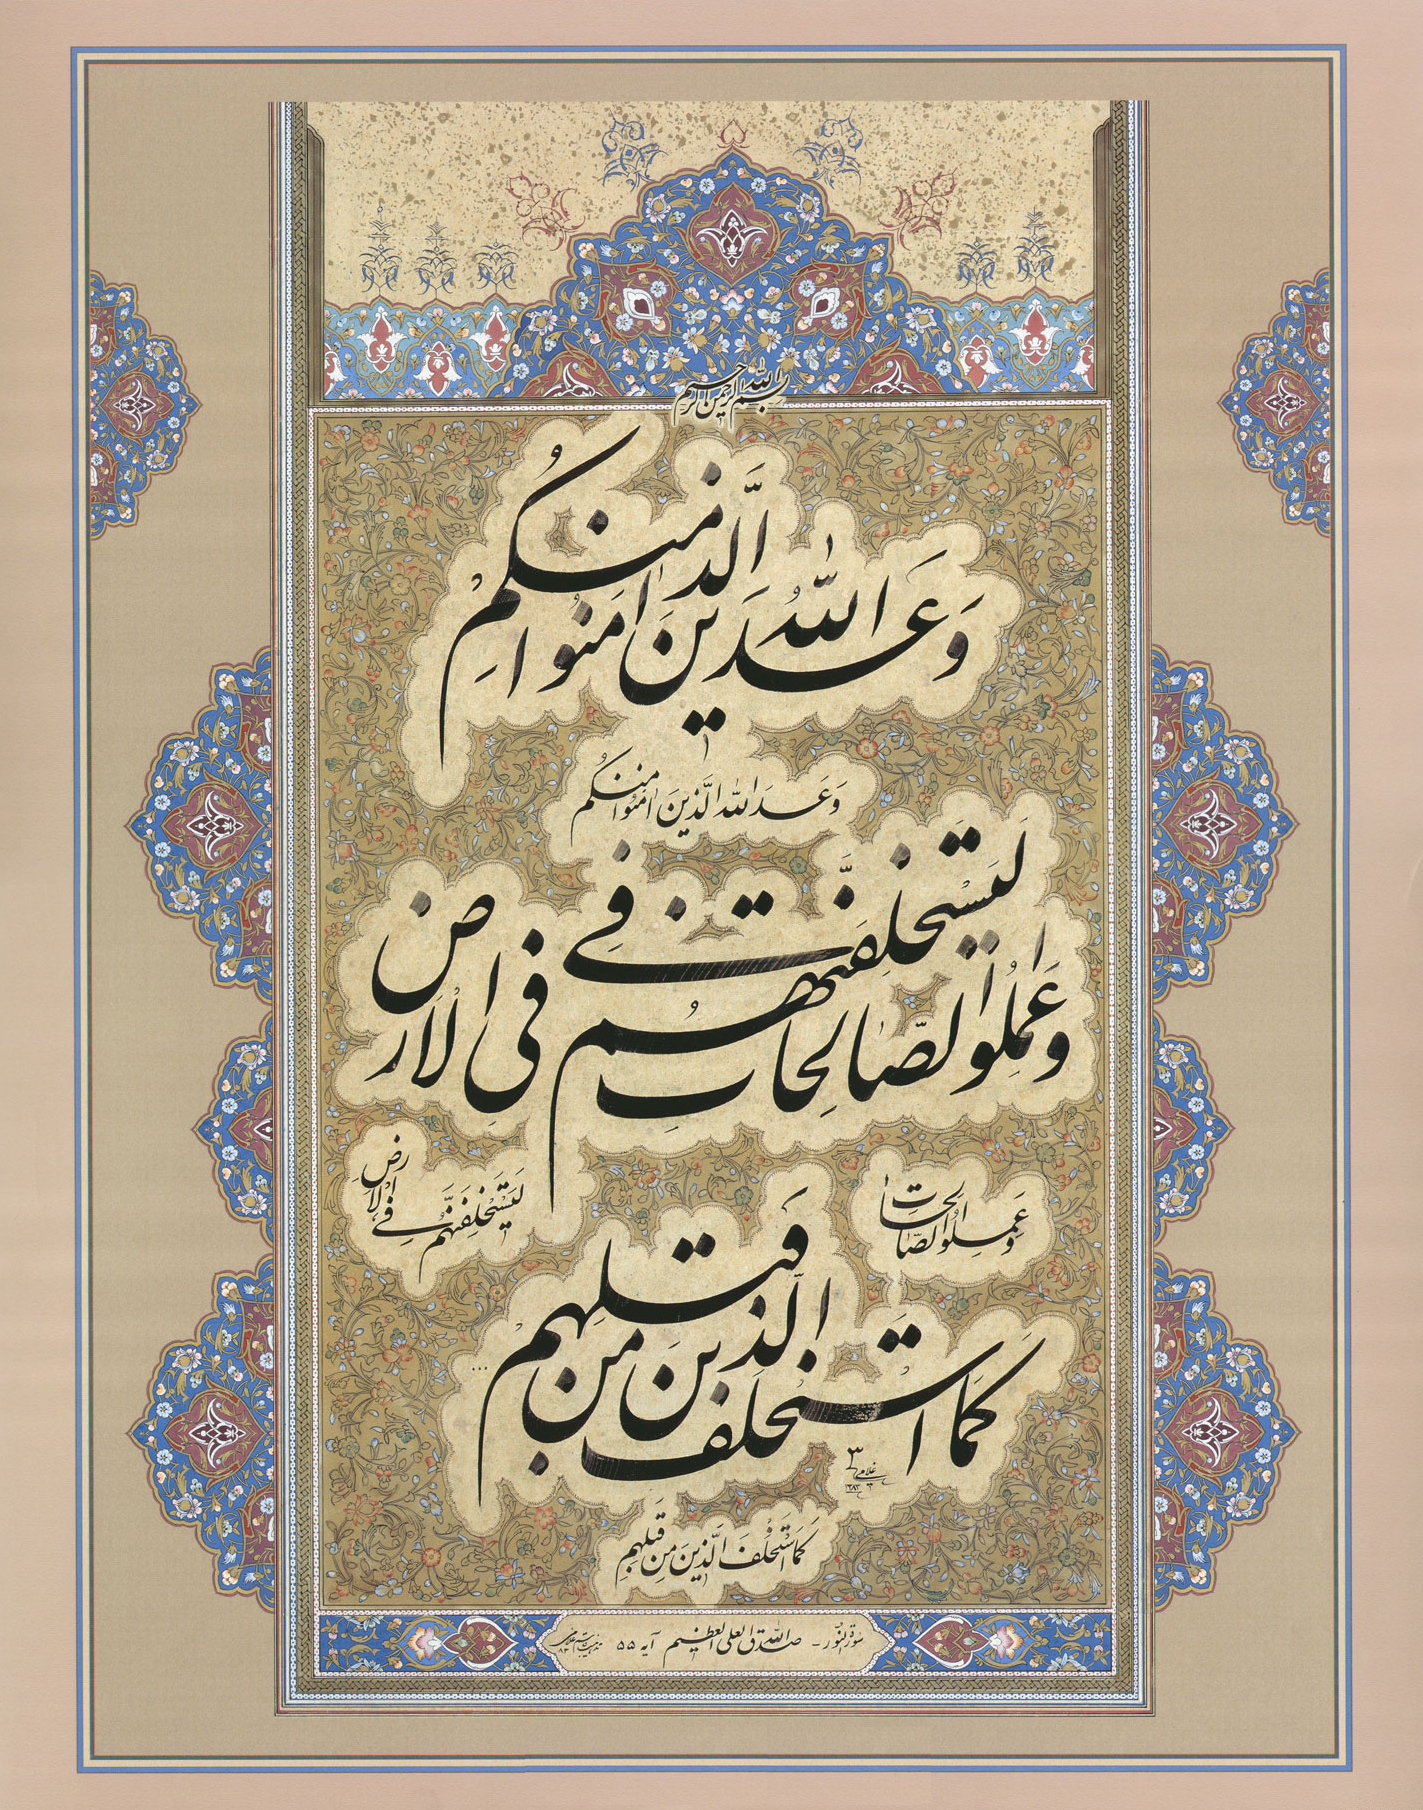 بسم الله الرحمن الرحیم
وَعَدَ اللهُ الَّذینَ اٰمَنُوا مِنکُم
وَعَدَ الله الَّذینَ اٰمَنُوا مِنکُم
وَعَمِلُوا الصّالِحاتِ لَیَستَخلِفَنَّهُم فِی الاَرضِ
وَعَمِلُوا الصّالِحاتِ
لَیَستَخلِفَنَّهُم فِی الاَرضِ
کَمَا استَخلَفَ الَّذینَ مِن قَبلِهِم ...
غلامی ۱۳۸۳
کَمَا استَخلَفَ الَّذینَ مِن قَبلِهِم
سورة النّور - صدق الله العلی العظیم آیه ۵۵